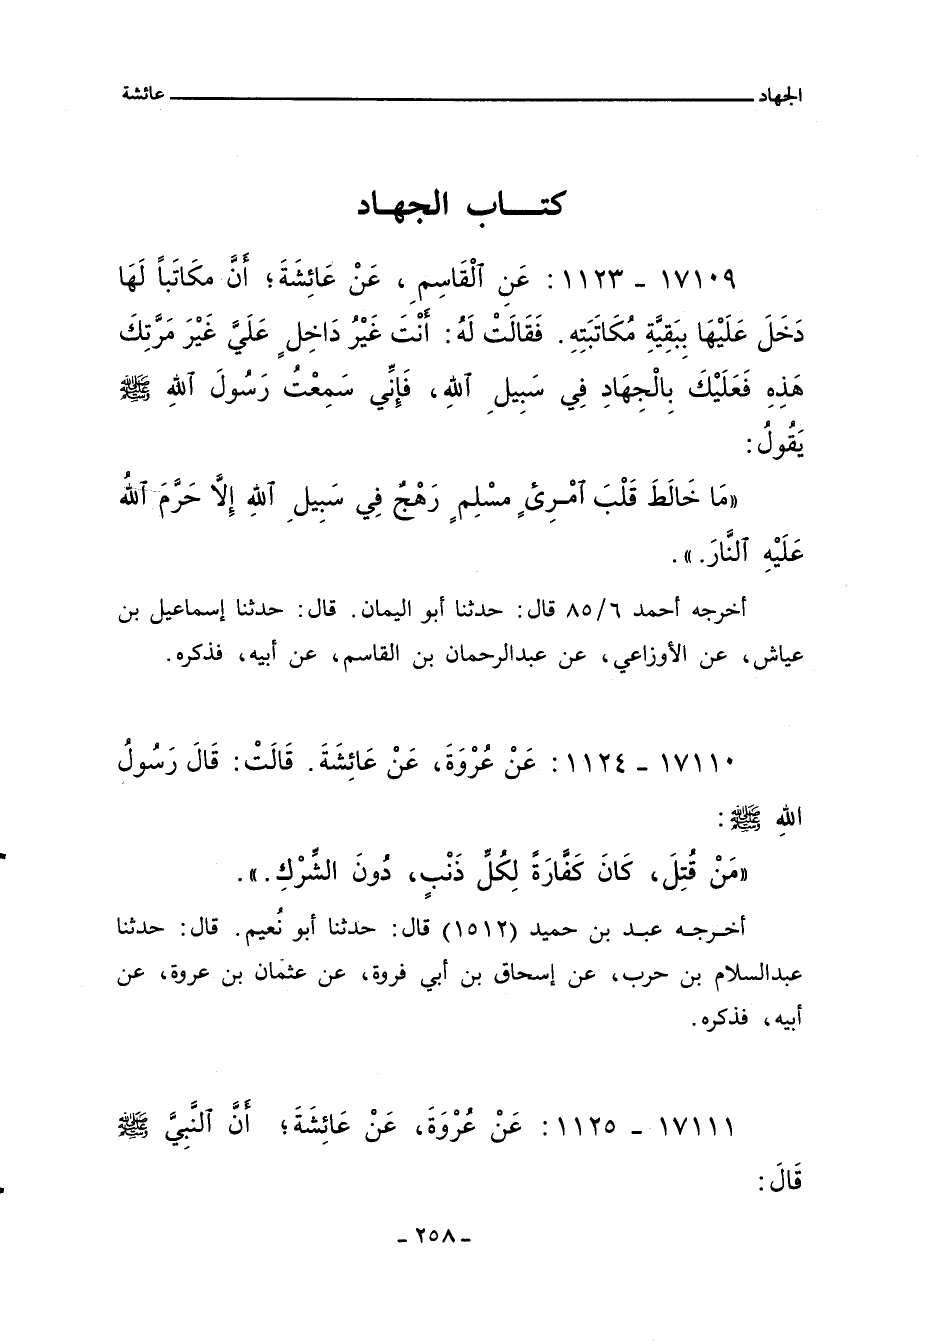 الجهاد ـــــــــــــــــــــــــــــــــــــــــ عائشة
كتـــاب الجهـاد
١٧١٠٩ - ١١٢٣: عَنِ ٱلْقَاسِمِ، عَنْ عَائِشَةَ؛ أَنَّ مكَاتَباً لَهَا
دَخَلَ عَلَيْهَا بِبَقِيَّةِ مُكَاتَبَتِهِ. فَقَالَتْ لَهُ: أَنْتَ غَيْرُ دَاخِلٍ عَلَيَّ غَيْرَ مَرَّتِكَ
هَذِهِ فَعَلَيْكَ بِالْجِهَادِ فِي سَبِيلِ ٱللهِ، فَإِنِّي سَمِعْتُ رَسُولَ ٱللهِ ﷺ
يَقُولُ:
«مَا خَالَطَ قَلْبَ ٱمْـرِئٍ مسْلِمٍ رَهْجٌ فِي سَبِيلِ ٱللهِ إِلَّا حَرَّمَ ٱللهُ
عَلَيْهِ ٱلنَّارَ.».
أخرجه أحمد ٨٥/٦ قال: حدثنا أبو اليمان. قال: حدثنا إسماعيل بن
عياش، عن الأوزاعي، عن عبدالرحمان بن القاسم، عن أبيه، فذكره.
١٧١١٠ - ١١٢٤: عَنْ عُرْوَةَ، عَنْ عَائِشَةَ. قَالَتْ: قَالَ رَسُولُ
اللهِ ﷺ:
«مَنْ قُتِلَ، كَانَ كَفَّارَةً لِكُلِّ ذَنْبٍ، دُونَ الشِّرْكِ.».
أخـرجـه عبـد بن حميد (١٥١٢) قال: حدثنا أبو نُعيم. قال: حدثنا
عبدالسلام بن حرب، عن إسحاق بن أبي فروة، عن عثمان بن عروة، عن
أبيه، فذكره.
١٧١١١ - ١١٢٥: عَنْ عُرْوَةَ، عَنْ عَائِشَةَ؛ أَنَّ ٱلنَّبِيَّ ﷺ
قَالَ:
- ٢٥٨ -